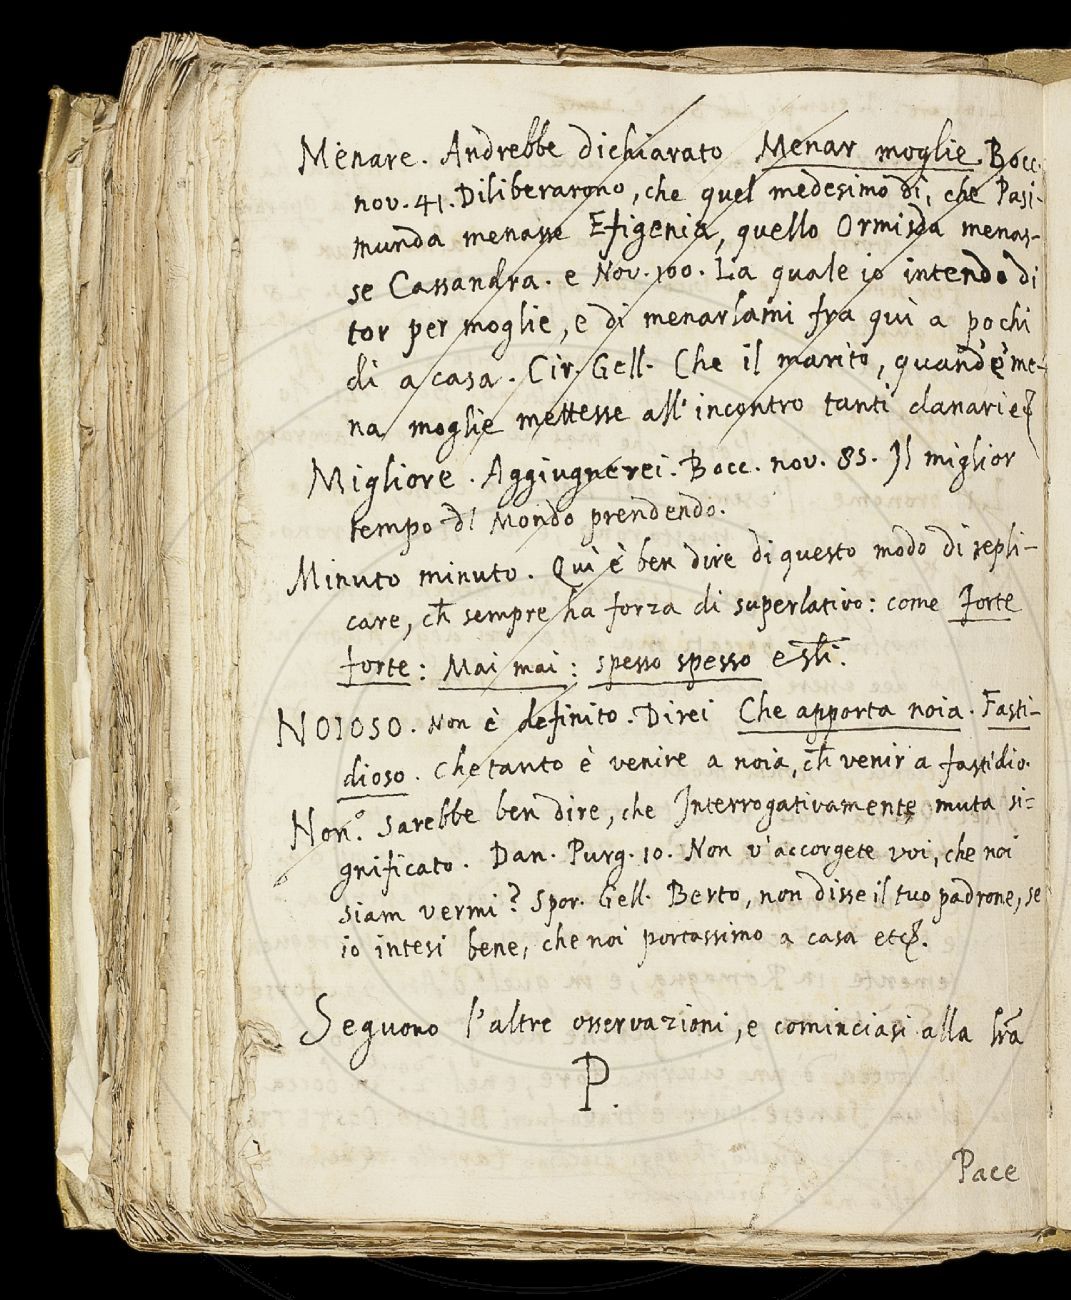 Menare. Andrebbe dichiarato Menar moglie. Bocc.
nov. 41. Diliberarono, che quel medesimo dì, che Pasi-
munda menasse Efigenia, quello Ormisda menas-
se Cassandra. e Nov. 100. La quale io intendo di
tor per moglie, e di menarlami fra quì a pochi
dì a casa. Cir. Gell. Che il marito, quand'e' me-
na moglie mettesse all'incontro tanti danari e
Migliore. Aggiugnerei. Bocc. nov. 85. Il miglior
tempo dl Mondo prendendo.
Minuto minuto. Quì è ben dire di questo modo di repli-
care, ch̃ sempre ha forza di superlativo: come forte
forte: Mai mai: spesso spesso e sĩli.
NOIOSO. Non è definito. Direi Che apporta noia. Fasti-
dioso. Che tanto è venire a noia, ch̃ venir a fastidio.
Non. Sarebbe ben dire, che Interrogativamente muta si-
gnificato. Dan. Purg. 10. Non v'accorgete voi, che noi
siam vermi? Spor. Gell. Berto, non disse il tuo padrone, se
io intesi bene, che noi portassimo a casa etc.
Seguono l'altre osservazioni, e cominciasi alla lr̃a
P.
Pace